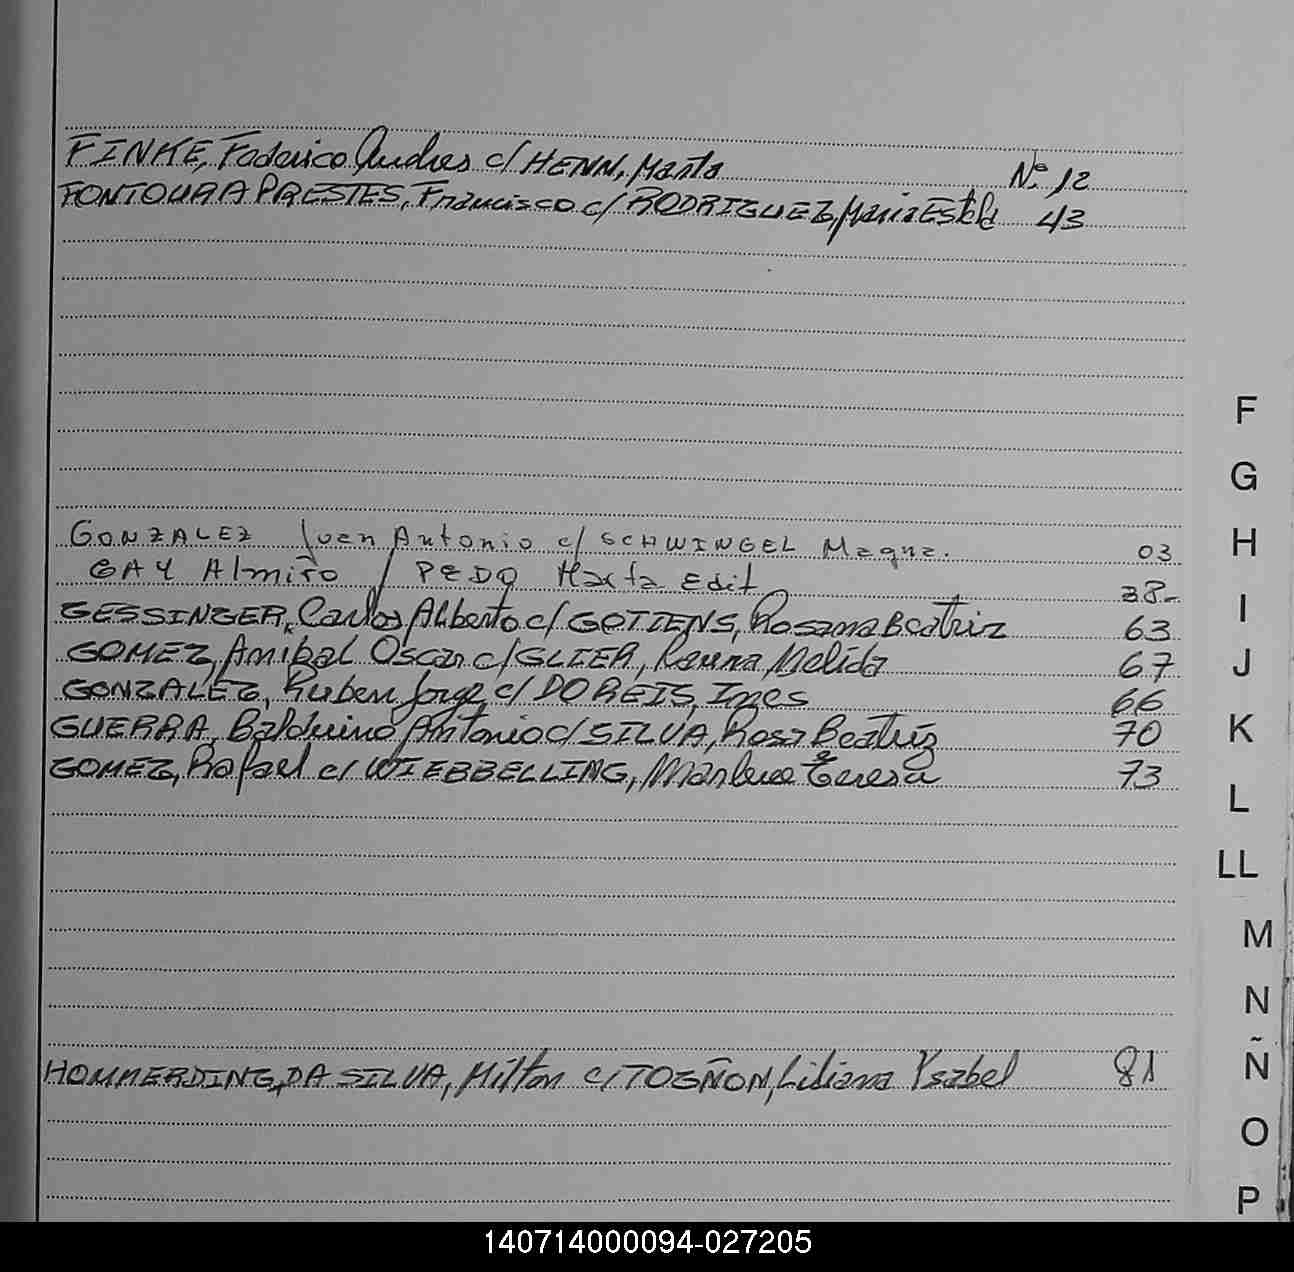 FINKE, Federico Andres c/ HENN, Marta Nº 12
FONTOURA PRESTES, Francisco c/ RODRIGUEZ, Maria Estela 43
GONZALEZ Juan Antonio c/ SCHWINGEL Magna. 03
GAY Almiro / PEDO Marta Edit 38-
GESSINGER, Carlos Alberto c/ GOTTENS, Rosana Beatriz 63
GOMEZ, Anibal Oscar c/ GLIER, Reuna Melida 67
GONZALEZ, Ruben Jorge c/ DOREIS, Ines 66
GUERRA, Balduino Antonio c/ SILVA, Rosa Beatriz 70
GOMEZ, Rafael c/ WIEBBELLING, Marlene Teresa 73
HOMMERDING, DA SILVA, Milton c/ TOGÑON, Liliana Ysabel 81
F
G
H
I
J
K
L
LL
M
N
Ñ
O
P
140714000094-027205